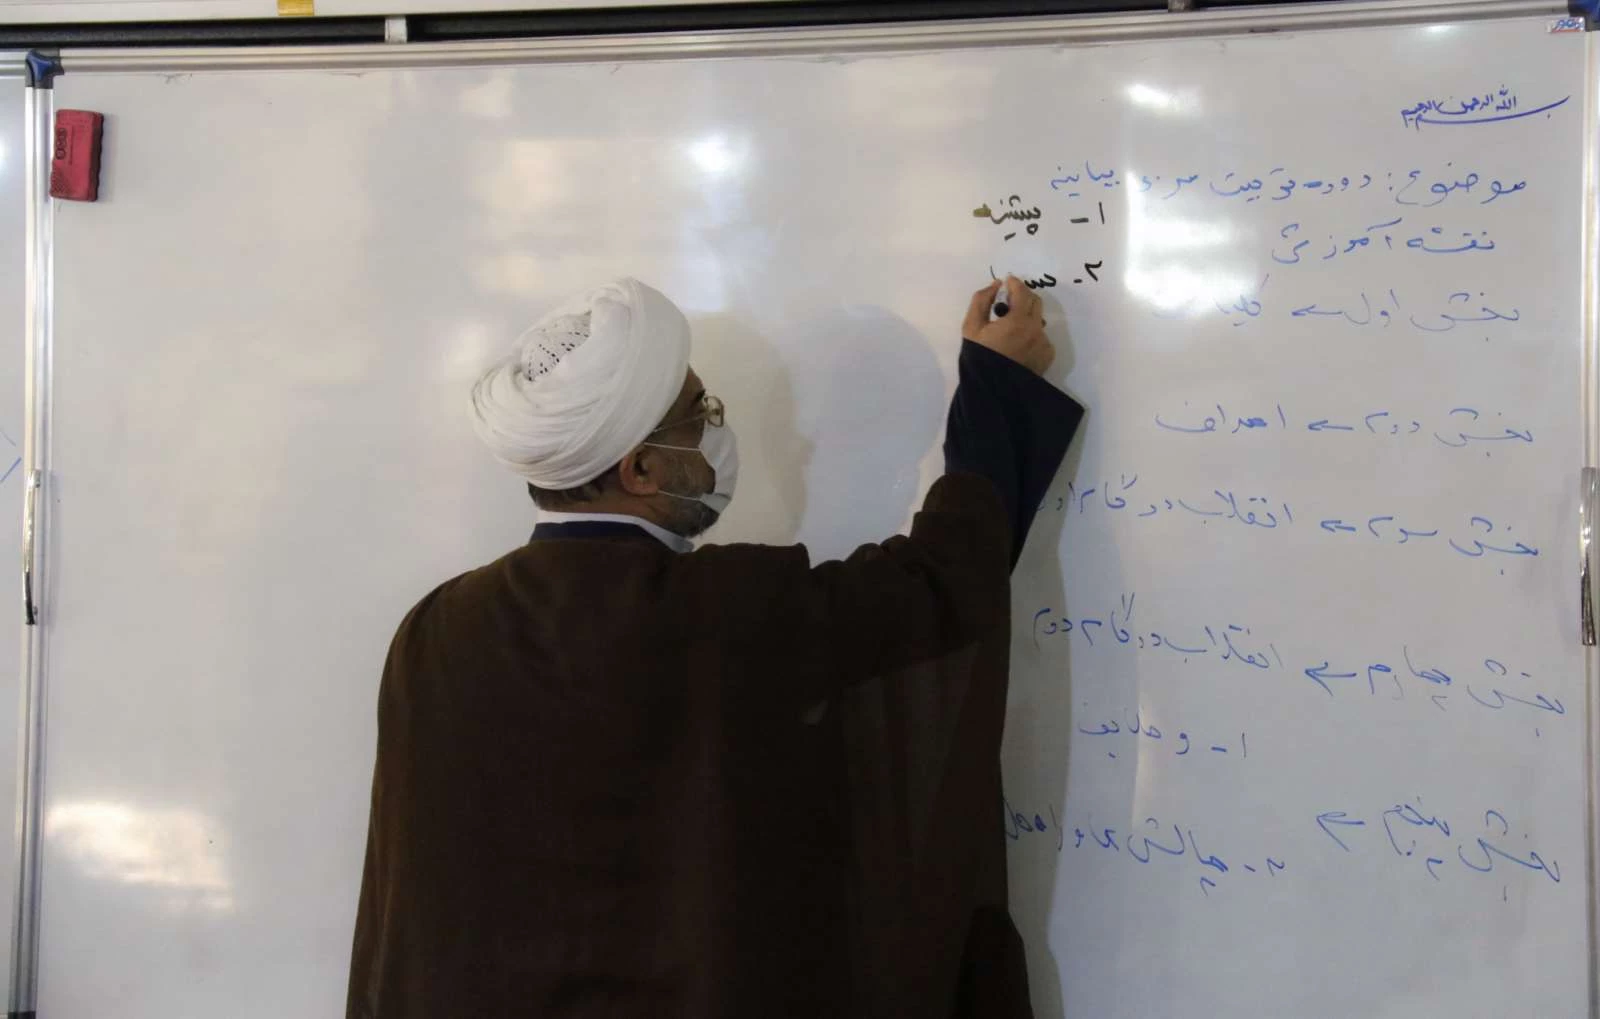 بسم الله الرحمن الرحیم
موضوع: دوره تربیت مربی بیانیه
نقشه آموزشی
بخش اول ← کلیات
۱- پیشینه
۲-
بخش دوم ← اهداف
بخش سوم ← انقلاب در گام اول
بخش چهارم ← انقلاب در گام دوم
۱- وظایف
بخش پنجم ← ۲- چالش ها و راه حل